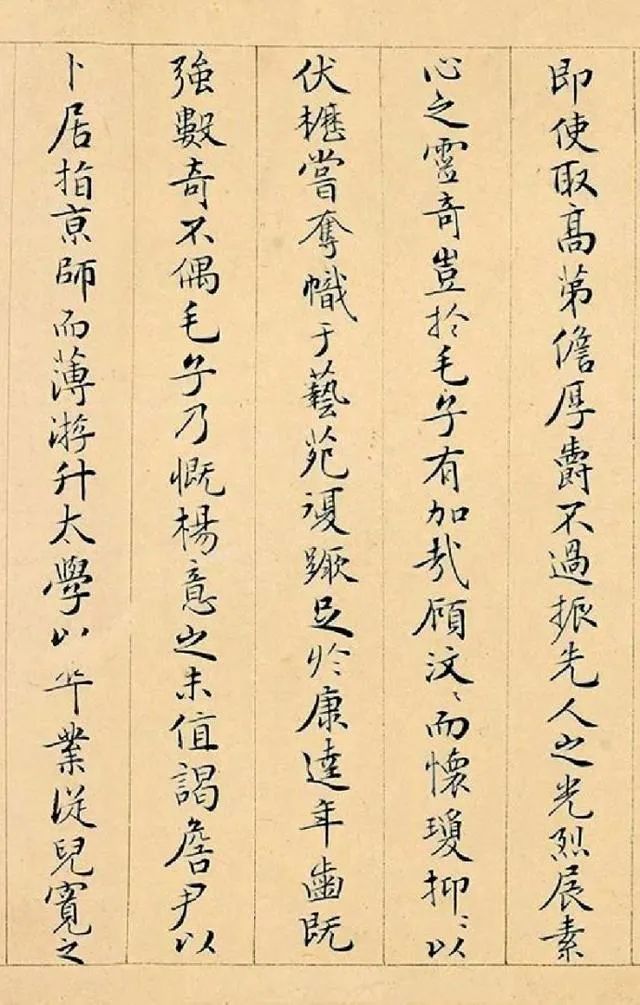 即使取高第儋厚爵不過振先人之光烈展素
心之靈奇豈於毛子有加哉顧汶〻而懷瓊抑〻以
伏櫪嘗奪幟于藝苑復蹶足於康逵年齒既
強數奇不偶毛子乃慨楊意之未值謁詹尹以
卜居指京師而薄游升太學以卒業從兒寬之